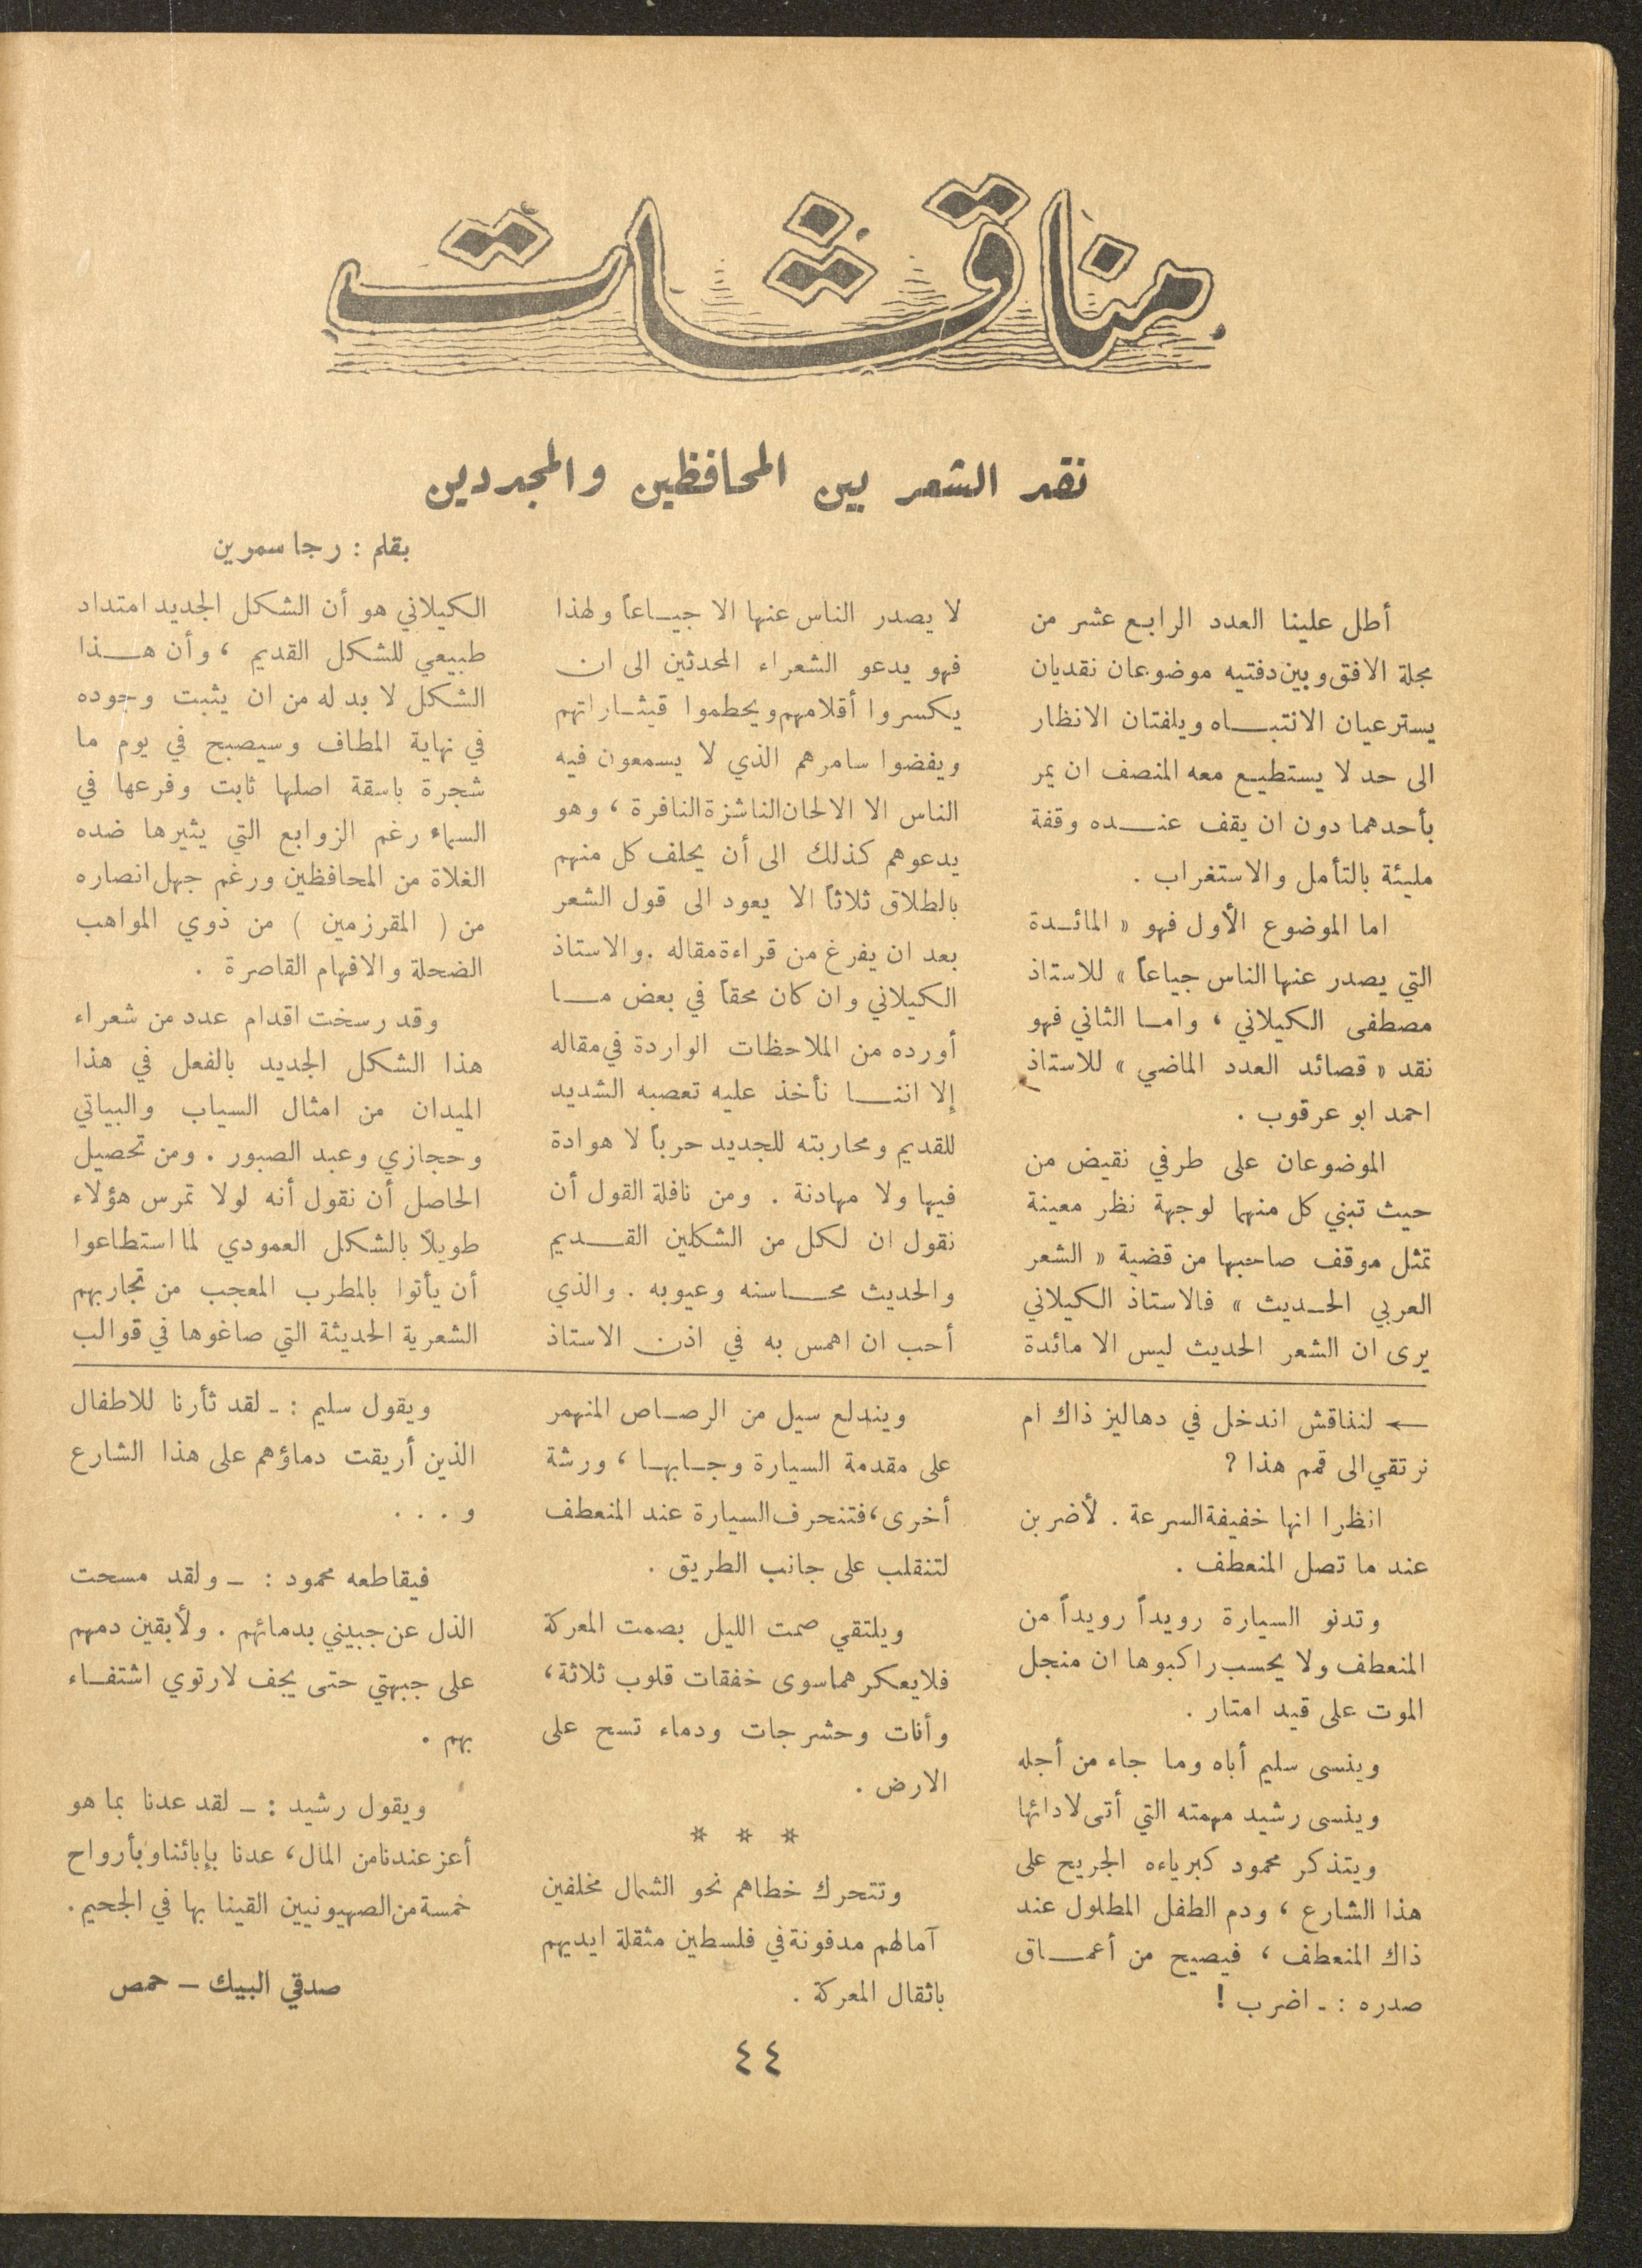 مناقشات
نقد الشعر بين المحافظين والمجددين
بقلم : رجا سمرين
أطل علينا العدد الرابع عشر من
مجلة الافق وبين دفتيه موضوعان نقديان
يسترعيان الانتباه ويلفتان الانظار
الى حد لا يستطيع معه المنصف ان يمر
بأحدهما دون ان يقف عنده وقفة
مليئة بالتأمل والاستغراب .
اما الموضوع الأول فهو « المائدة
التي يصدر عنها الناس جياعاً » للاستاذ
مصطفى الكيلاني ، واما الثاني فهو
نقد « قصائد العدد الماضي » للاستاذ
احمد ابو عرقوب .
الموضوعان على طرفي نقيض من
حيث تبني كل منهما لوجهة نظر معينة
تمثل موقف صاحبها من قضية « الشعر
العربي الحديث » فالاستاذ الكيلاني
يرى ان الشعر الحديث ليس الا مائدة
لا يصدر الناس عنها الا جياعاً ولهذا
فهو يدعو الشعراء المحدثين الى ان
يكسروا أقلامهم ويحطموا قيثاراتهم
ويفضوا سامرهم الذي لا يسمعون فيه
الناس الا الالحان الناشزة النافرة ، وهو
يدعوهم كذلك الى أن يحلف كل منهم
بالطلاق ثلاثاً الا يعود الى قول الشعر
بعد ان يفرغ من قراءة مقاله . والاستاذ
الكيلاني وان كان محقاً في بعض ما
أورده من الملاحظات الواردة في مقاله
إلا اننا نأخذ عليه تعصبه الشديد
للقديم ومحاربته للجديد حرباً لا هوادة
فيها ولا مهادنة . ومن نافلة القول أن
نقول ان لكل من الشكلين القديم
والحديث محاسنه وعيوبه . والذي
أحب ان اهمس به في اذن الاستاذ
الكيلاني هو أن الشكل الجديد امتداد
طبيعي للشكل القديم ، وأن هذا
الشكل لا بد له من ان يثبت وجوده
في نهاية المطاف وسيصبح في يوم ما
شجرة باسقة اصلها ثابت وفرعها في
السماء رغم الزوابع التي يثيرها ضده
الغلاة من المحافظين ورغم جهل انصاره
من ( المقرزمين ) من ذوي المواهب
الضحلة والافهام القاصرة .
وقد رسخت اقدام عدد من شعراء
هذا الشكل الجديد بالفعل في هذا
الميدان من امثال السياب والبياتي
وحجازي وعبد الصبور . ومن تحصيل
الحاصل أن نقول أنه لولا تمرس هؤلاء
طويلاً بالشكل العمودي لما استطاعوا
أن يأتوا بالمطرب المعجب من تجاربهم
الشعرية الحديثة التي صاغوها في قوالب
← لنناقش اندخل في دهاليز ذاك ام
نرتقي الى قمم هذا ?
انظرا انها خفيفة السرعة . لأضربن
عند ما تصل المنعطف .
وتدنو السيارة رويداً رويداً من
المنعطف ولا يحسب راكبوها ان منجل
الموت على قيد امتار .
وينسى سليم أباه وما جاء من أجله
وينسى رشيد مهمته التي أتى لادائها
ويتذكر محمود كبرياءه الجريح على
هذا الشارع ، ودم الطفل المطلول عند
ذاك المنعطف ، فيصيح من أعماق
صدره : ـ اضرب !
ويندلع سيل من الرصاص المنهمر
على مقدمة السيارة وجابها ، ورشة
أخرى ، فتنحرف السيارة عند المنعطف
لتنقلب على جانب الطريق .
ويلتقي صمت الليل بصمت المعركة
فلا يعكرهما سوى خفقات قلوب ثلاثة ،
وأنات وحشرجات ودماء تسح على
الارض .
* * *
وتتحرك خطاهم نحو الشمال مخلفين
آمالهم مدفونة في فلسطين مثقلة ايديهم
باثقال المعركة .
ويقول سليم : ـ لقد ثأرنا للاطفال
الذين أريقت دماؤهم على هذا الشارع
و . . .
فيقاطعه محمود : ـ ولقد مسحت
الذل عن جبيني بدمائهم . ولأبقين دمهم
على جبهتي حتى يجف لارتوي اشتفاء
بهم .
ويقول رشيد : ـ لقد عدنا بما هو
أعز عندنا من المال ، عدنا بإبائنا وبأرواح
خمسة من الصهيونيين القينا بها في الجحيم .
صدقي البيك – حمص
٤٤